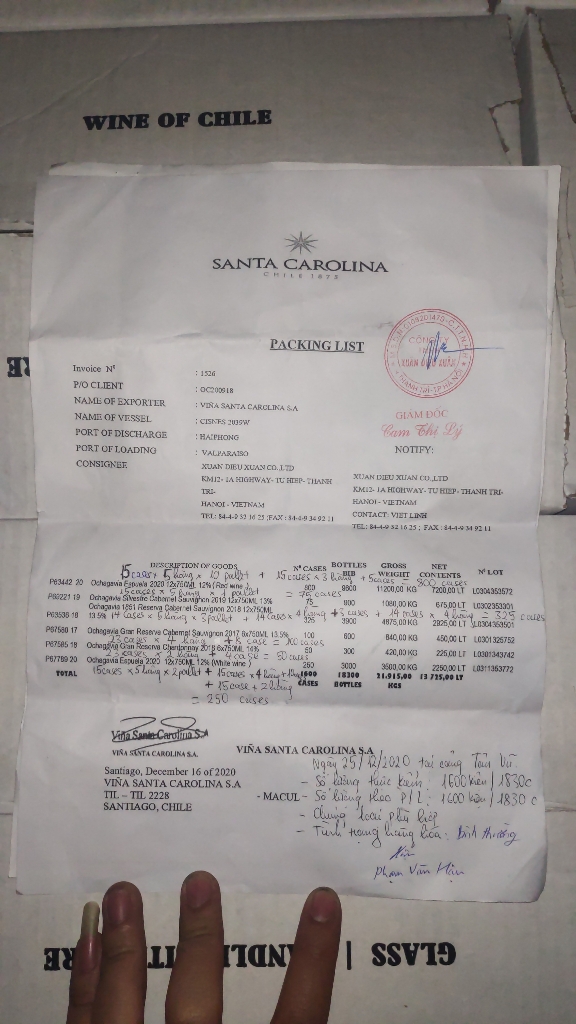 WINE OF CHILE
SANTA CAROLINA
CHILE 1875
PACKING LIST
Invoice Nº : 1526
P/O CLIENT : OC200918
NAME OF EXPORTER : VIÑA SANTA CAROLINA S.A
NAME OF VESSEL : CISNES 2039W
PORT OF DISCHARGE : HAIPHONG
PORT OF LOADING : VALPARAISO
CONSIGNEE XUAN DIEU XUAN CO.,LTD
KM12- 1A HIGHWAY- TU HIEP- THANH
TRI-
HANOI - VIETNAM
TEL: 84-4-9 32 16 25 ; FAX : 84-4-9 34 92 11
XUAN DIEU XUAN
THANH TRÌ-TP HÀ NỘI
GIÁM ĐỐC
Cam Thị Lý
NOTIFY:
XUAN DIEU XUAN CO.,LTD
KM12- 1A HIGHWAY- TU HIEP- THANH TRI-
HANOI - VIETNAM
CONTACT: VIET LINH
TEL: 84-4-9 32 16 25 ; FAX : 84-4-9 34 92 11
DESCRIPTION OF GOODS Nº CASES BOTTLES GROSS WEIGHT NET CONTENTS Nº LOT
15 cases x 5 hàng x 10 pallet + 15 cases x 3 hàng + 5 cases = 800 cases
P63442 20 Ochagavia Espuela 2020 12x750ML 12% (Red wine) 800 9600 11200,00 KG 7200,00 LT L0304353572
15 cases x 5 hàng x 1 pallet = 75 cases
Ochagavia Silvestre Cabernet Sauvignon 2019 12x750ML 13% 75 900 1080,00 KG 675,00 LT L0302353301
Ochagavia 1851 Reserva Cabernet Sauvignon 2018 12x750ML
P63536 18 13.5% 325 3900 4875,00 KG 2925,00 LT L0304353501
14 case x 6 hàng x 3 pallet + 14 cases x 4 hàng + 3 cases + 14 cases x 4 hàng = 325 cases
P67586 17 Ochagavia Gran Reserva Cabernet Sauvignon 2017 6x750ML 13.5% 100 600 840,00 KG 450,00 LT L0301325752
23 cases x 4 hàng + 8 case = 100 cases
P67585 18 Ochagavia Gran Reserva Chardonnay 2018 6x750ML 14% 50 300 420,00 KG 225,00 LT L0301343742
23 cases x 2 hàng + 4 case = 50 cases
P67789 20 Ochagavia Espuela 2020 12x750ML 12% (White wine) 250 3000 3500,00 KG 2250,00 LT L0311353772
TOTAL 1600 CASES 18300 BOTTLES 21.915,00 KGS 13.725,00 LT
15 cases x 5 hàng x 2 pallet + 15 cases x 4 hàng
+ 15 case + 2 hàng
= 250 cases
Viña Santa Carolina S.A
VIÑA SANTA CAROLINA S.A.
VIÑA SANTA CAROLINA S.A
Santiago, December 16 of 2020
VIÑA SANTA CAROLINA S.A
TIL – TIL 2228 - MACUL -
SANTIAGO, CHILE
Ngày 25/12/2020 tại cảng Tân Vũ
- Số lượng thực kiểm: 1600 kiện / 1830c
- Số lượng theo P/L: 1600 kiện / 1830 c
- Chủng loại phù hợp
- Tình trạng hàng hóa: Bình thường
Phạm Văn Hậu
GLASS | HANDLE WITH